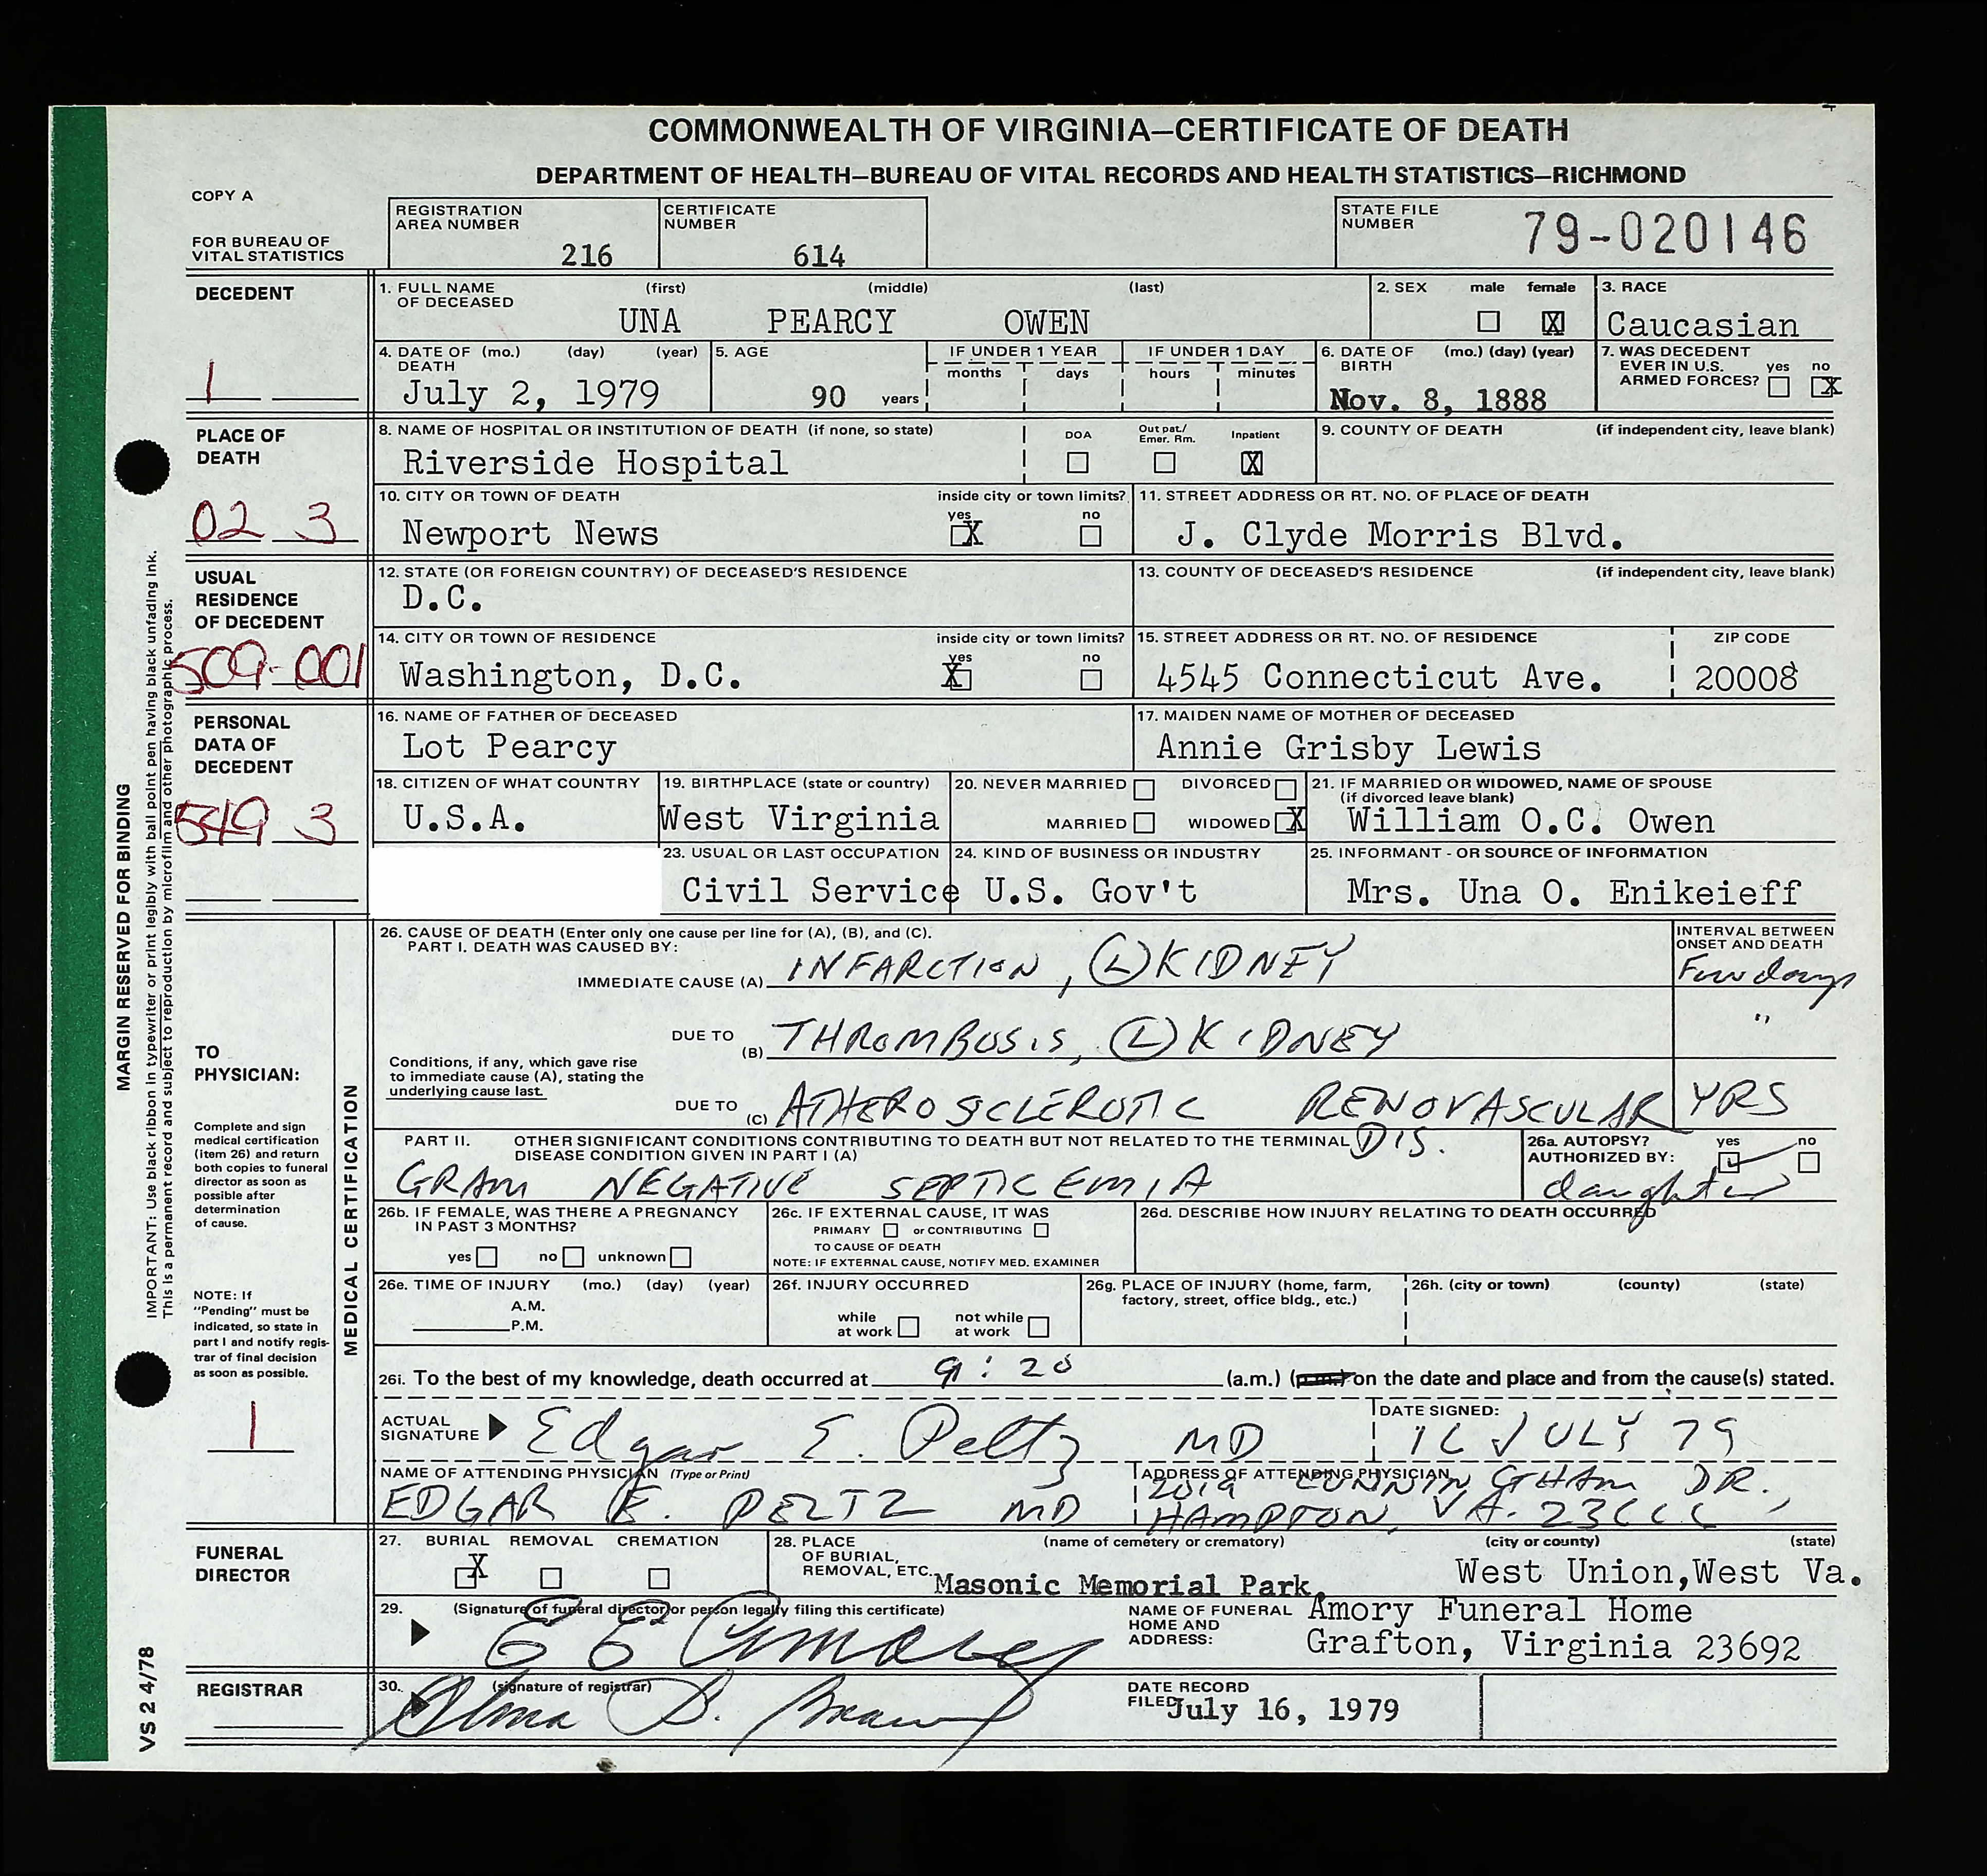 COMMONWEALTH OF VIRGINIA—CERTIFICATE OF DEATH
DEPARTMENT OF HEALTH—BUREAU OF VITAL RECORDS AND HEALTH STATISTICS—RICHMOND
COPY A
FOR BUREAU OF
VITAL STATISTICS
REGISTRATION
AREA NUMBER
216
CERTIFICATE
NUMBER
614
STATE FILE
NUMBER
79-020146
DECEDENT
1
1. FULL NAME
OF DECEASED
(first) (middle) (last)
UNA PEARCY OWEN
2. SEX male female
X
3. RACE
Caucasian
4. DATE OF (mo.) (day) (year)
DEATH
July 2, 1979
5. AGE
90 years
IF UNDER 1 YEAR
months days
IF UNDER 1 DAY
hours minutes
6. DATE OF (mo.) (day) (year)
BIRTH
Nov. 8, 1888
7. WAS DECEDENT
EVER IN U.S.
ARMED FORCES? yes no
X
PLACE OF
DEATH
02 3
8. NAME OF HOSPITAL OR INSTITUTION OF DEATH (if none, so state)
Riverside Hospital
DOA
Out pat./
Emer. Rm.
Inpatient
X
9. COUNTY OF DEATH (if independent city, leave blank)
10. CITY OR TOWN OF DEATH inside city or town limits?
yes no
Newport News X
11. STREET ADDRESS OR RT. NO. OF PLACE OF DEATH
J. Clyde Morris Blvd.
USUAL
RESIDENCE
OF DECEDENT
509-001
12. STATE (OR FOREIGN COUNTRY) OF DECEASED'S RESIDENCE
D.C.
13. COUNTY OF DECEASED'S RESIDENCE (if independent city, leave blank)
14. CITY OR TOWN OF RESIDENCE inside city or town limits?
yes no
Washington, D.C. X
15. STREET ADDRESS OR RT. NO. OF RESIDENCE ZIP CODE
4545 Connecticut Ave. 20008
PERSONAL
DATA OF
DECEDENT
549 3
16. NAME OF FATHER OF DECEASED
Lot Pearcy
17. MAIDEN NAME OF MOTHER OF DECEASED
Annie Grisby Lewis
18. CITIZEN OF WHAT COUNTRY
U.S.A.
19. BIRTHPLACE (state or country)
West Virginia
20. NEVER MARRIED DIVORCED
MARRIED WIDOWED X
21. IF MARRIED OR WIDOWED, NAME OF SPOUSE
(if divorced leave blank)
William O.C. Owen
23. USUAL OR LAST OCCUPATION
Civil Service
24. KIND OF BUSINESS OR INDUSTRY
U.S. Gov't
25. INFORMANT - OR SOURCE OF INFORMATION
Mrs. Una O. Enikeieff
MARGIN RESERVED FOR BINDING
IMPORTANT: Use black ribbon in typewriter or print legibly with ball point pen having black unfading ink.
This is a permanent record and subject to reproduction by microfilm and other photographic process.
TO
PHYSICIAN:
Complete and sign
medical certification
(item 26) and return
both copies to funeral
director as soon as
possible after
determination
of cause.
NOTE: If
"Pending" must be
indicated, so state in
part I and notify regis-
trar of final decision
as soon as possible.
1
MEDICAL CERTIFICATION
26. CAUSE OF DEATH (Enter only one cause per line for (A), (B), and (C).
PART I. DEATH WAS CAUSED BY:
INTERVAL BETWEEN
ONSET AND DEATH
IMMEDIATE CAUSE (A) INFARCTION, (L) KIDNEY Few days
DUE TO (B) THROMBOSIS, (L) KIDNEY "
Conditions, if any, which gave rise
to immediate cause (A), stating the
underlying cause last.
DUE TO (C) ATHEROSCLEROTIC RENOVASCULAR YRS
DIS.
PART II. OTHER SIGNIFICANT CONDITIONS CONTRIBUTING TO DEATH BUT NOT RELATED TO THE TERMINAL
DISEASE CONDITION GIVEN IN PART I (A)
GRAM NEGATIVE SEPTICEMIA
26a. AUTOPSY? yes no
AUTHORIZED BY:
daughter
26b. IF FEMALE, WAS THERE A PREGNANCY
IN PAST 3 MONTHS?
yes no unknown
26c. IF EXTERNAL CAUSE, IT WAS
PRIMARY or CONTRIBUTING
TO CAUSE OF DEATH
NOTE: IF EXTERNAL CAUSE, NOTIFY MED. EXAMINER
26d. DESCRIBE HOW INJURY RELATING TO DEATH OCCURRED
26e. TIME OF INJURY (mo.) (day) (year)
A.M.
P.M.
26f. INJURY OCCURRED
while
at work
not while
at work
26g. PLACE OF INJURY (home, farm,
factory, street, office bldg., etc.)
26h. (city or town) (county) (state)
26i. To the best of my knowledge, death occurred at 9:20 (a.m.) (p.m.) on the date and place and from the cause(s) stated.
ACTUAL
SIGNATURE
Edgar E. Peltz MD
DATE SIGNED:
16 JULY 79
NAME OF ATTENDING PHYSICIAN (Type or Print)
EDGAR E. PELTZ MD
ADDRESS OF ATTENDING PHYSICIAN
2019 CUNNINGHAM DR.,
HAMPTON, VA. 23666
FUNERAL
DIRECTOR
27. BURIAL REMOVAL CREMATION
X
28. PLACE
OF BURIAL,
REMOVAL, ETC.
(name of cemetery or crematory) (city or county) (state)
Masonic Memorial Park, West Union, West Va.
29. (Signature of funeral director or person legally filing this certificate)
E E Amory
NAME OF FUNERAL
HOME AND
ADDRESS:
Amory Funeral Home
Grafton, Virginia 23692
REGISTRAR
30. (signature of registrar)
DATE RECORD
FILED
July 16, 1979
VS 2 4/78